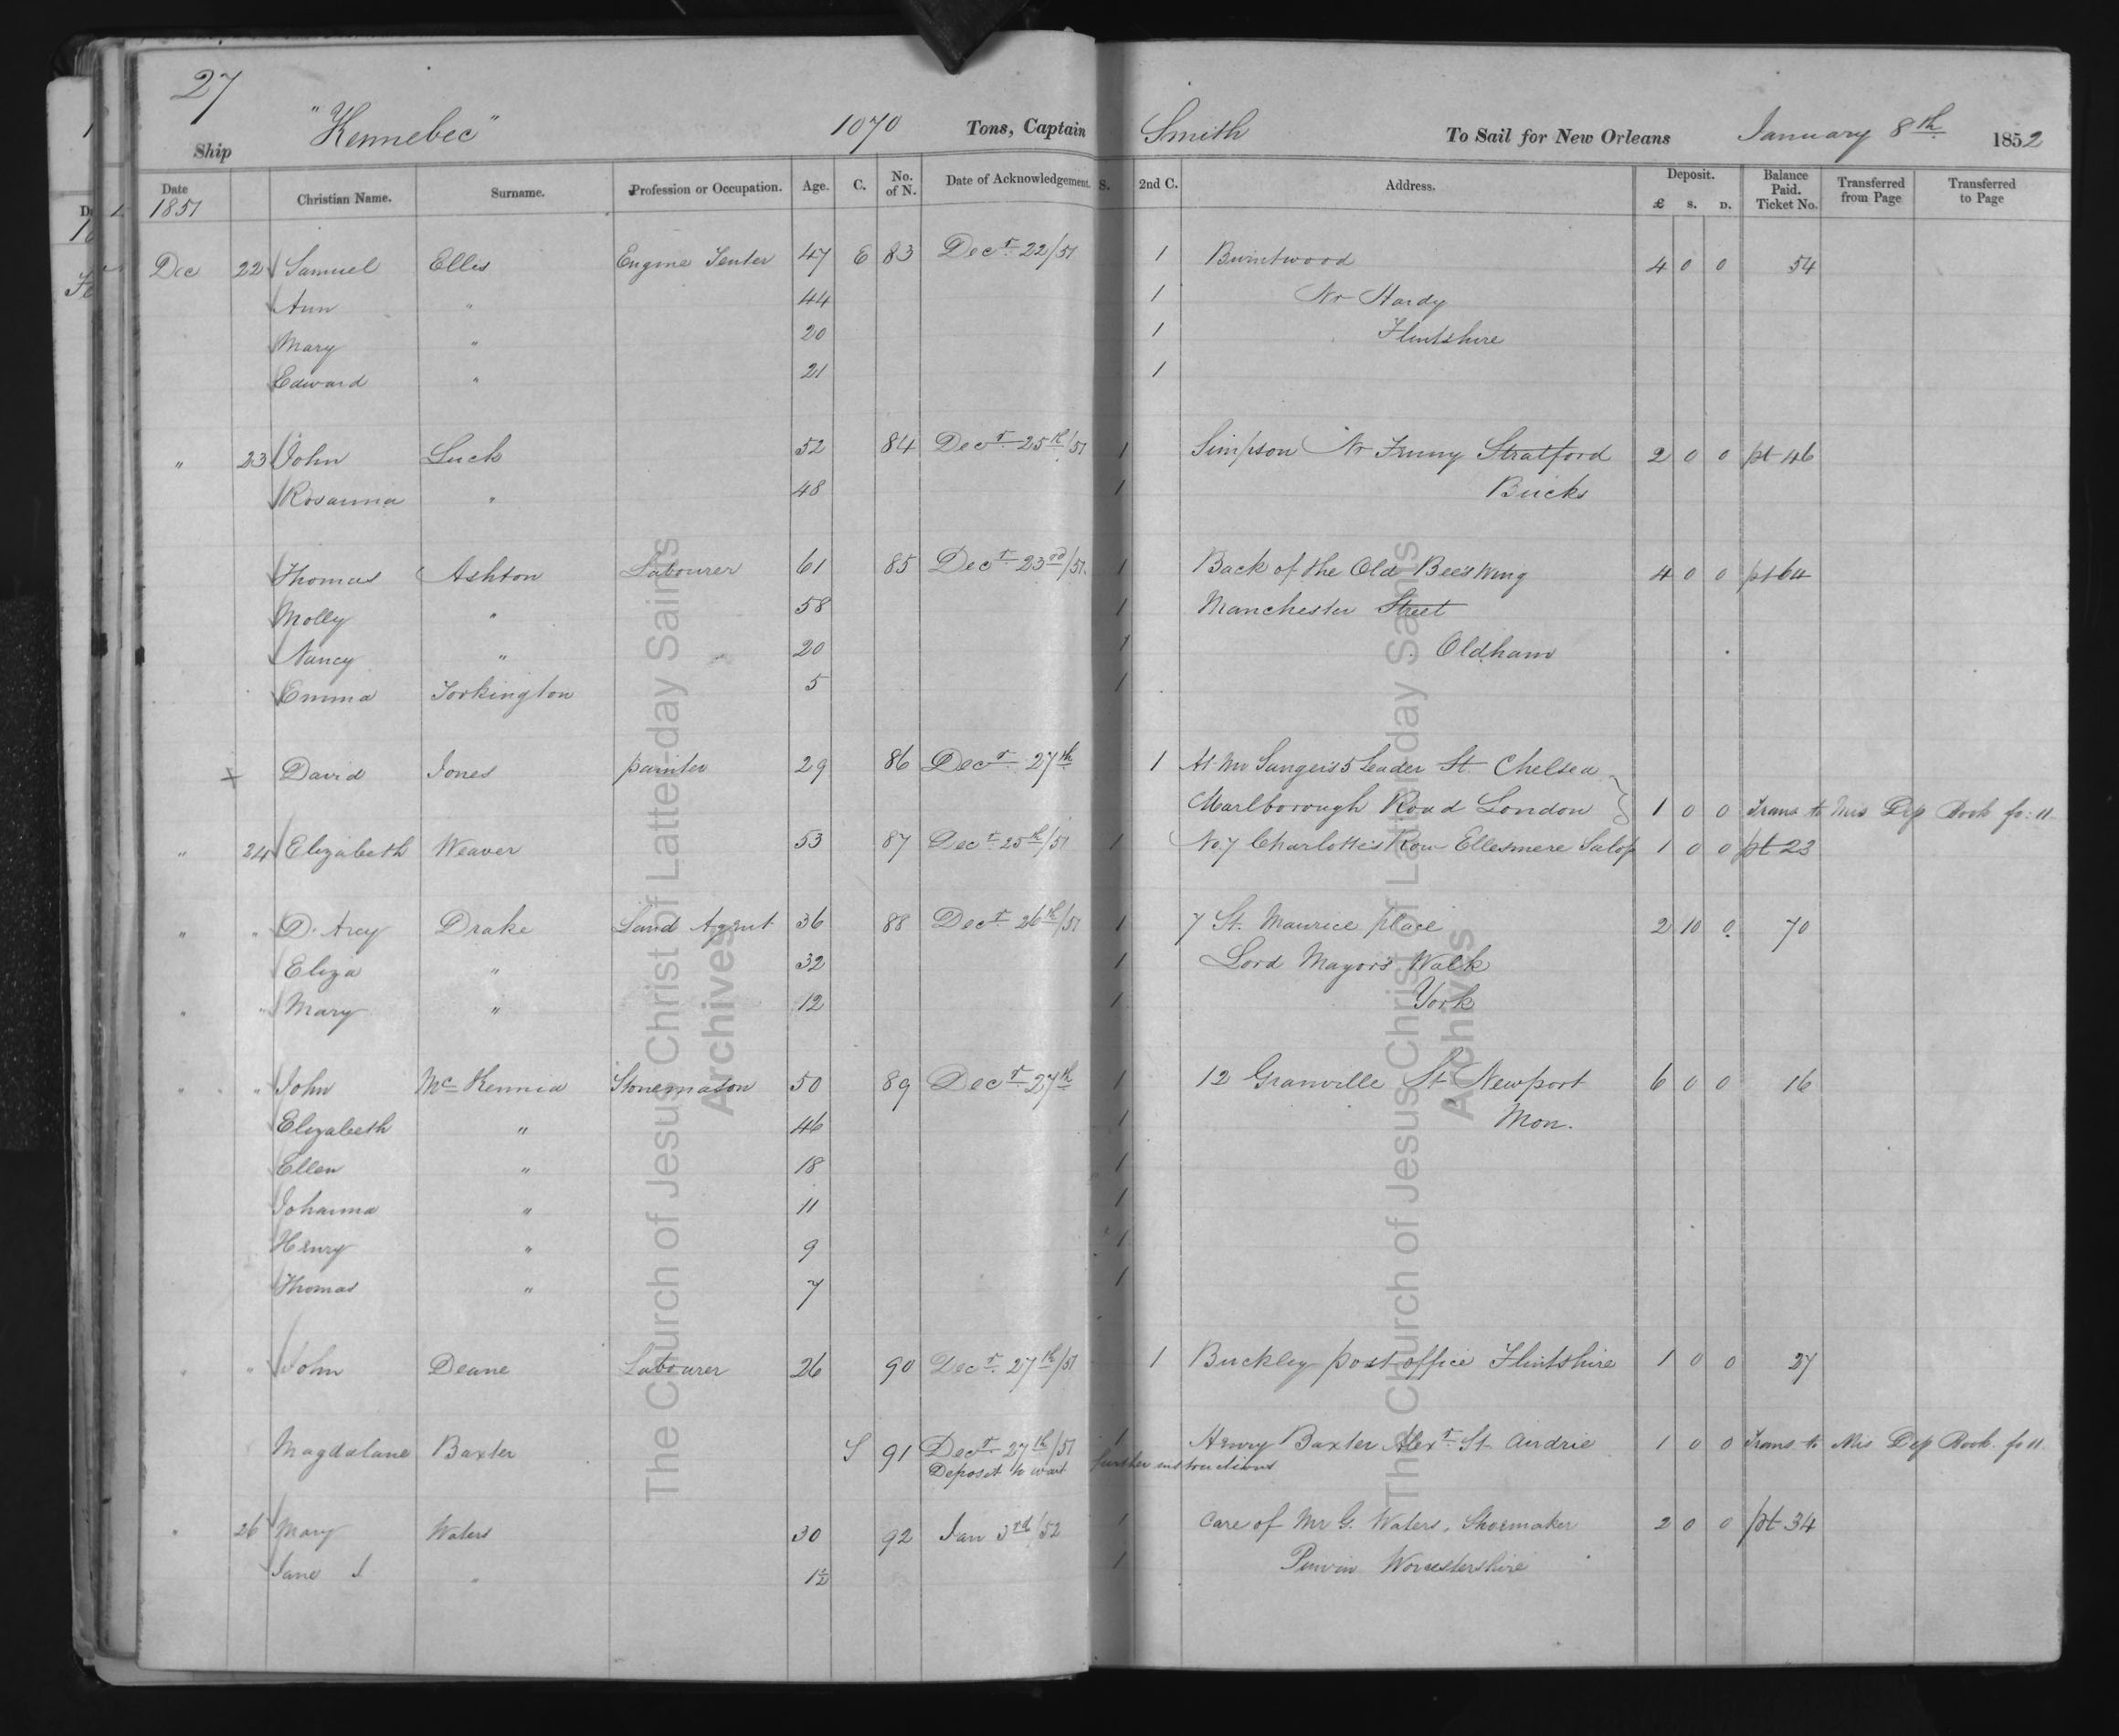 27
Ship "Kennebec" 1070 Tons, Captain Smith To Sail for New Orleans January 8th 1852
Date 1851 Christian Name. Surname. Profession or Occupation. Age. C. No. of N. Date of Acknowledgement. S. 2nd C. Address. Deposit. £ s. D. Balance Paid. Ticket No. Transferred from Page Transferred to Page
Dec 22 Samuel Ellis Engine Tenter 47 E 83 Decr 22/51 1 Burntwood 4 0 0 54
Ann " 44 1 Nr Hardy
Mary " 20 1 Flintshire
Edward " 21 1
" 23 John Luck 52 84 Decr 25th/51 1 Simpson Nr Fenny Stratford 2 0 0 pt 46
Rosanna " 48 1 Bucks
Thomas Ashton Labourer 61 85 Decr 23rd/51. 1 Back of the Old Bees Wing 4 0 0 pt 64
Molly " 58 1 Manchester Street
Nancy " 20 1 Oldham
Emma Torkington 5 1
x David Jones painter 29 86 Decr 27th 1 At Mr Sangers 5 Leader St. Chelsea
Marlborough Road London 1 0 0 Trans to Mis Dep Book fo: 11
" 24 Elizabeth Weaver 53 87 Decr 25th/51 1 No. 7 Charlotte's Row Ellesmere Salop 1 0 0 pt 23
" " D. Arcy Drake Land Agent 36 88 Decr 26th/51 1 7 St. Maurice place 2 10 0 70
Eliza " 32 1 Lord Mayor's Walk
" " Mary " 12 1 York
" " John Mc Kennia Stonemason 50 89 Decr 27th 1 12 Granville St Newport 6 0 0 16
Elizabeth " 46 1 Mon.
Ellen " 18 1
Johanna " 11 1
Henry " 9 1
Thomas " 7 1
" " John Deane Labourer 26 90 Decr 27th/51 1 Buckley post office Flintshire 1 0 0 27
Magdalane Baxter S 91 Decr 27th/51 1 Henry Baxter Alexr St. Airdrie 1 0 0 Trans to Mis Dep Book fo 11
Deposit to wait further instructions
" 26 Mary Waters 30 92 Jan 3rd/52 1 Care of Mr G. Waters, Shoemaker 2 0 0 pt 34
Jane " 1½ 1 Worcestershire
The Church of Jesus Christ of Latter-day Saints
Archives
The Church of Jesus Christ of Latter-day Saints
Archives